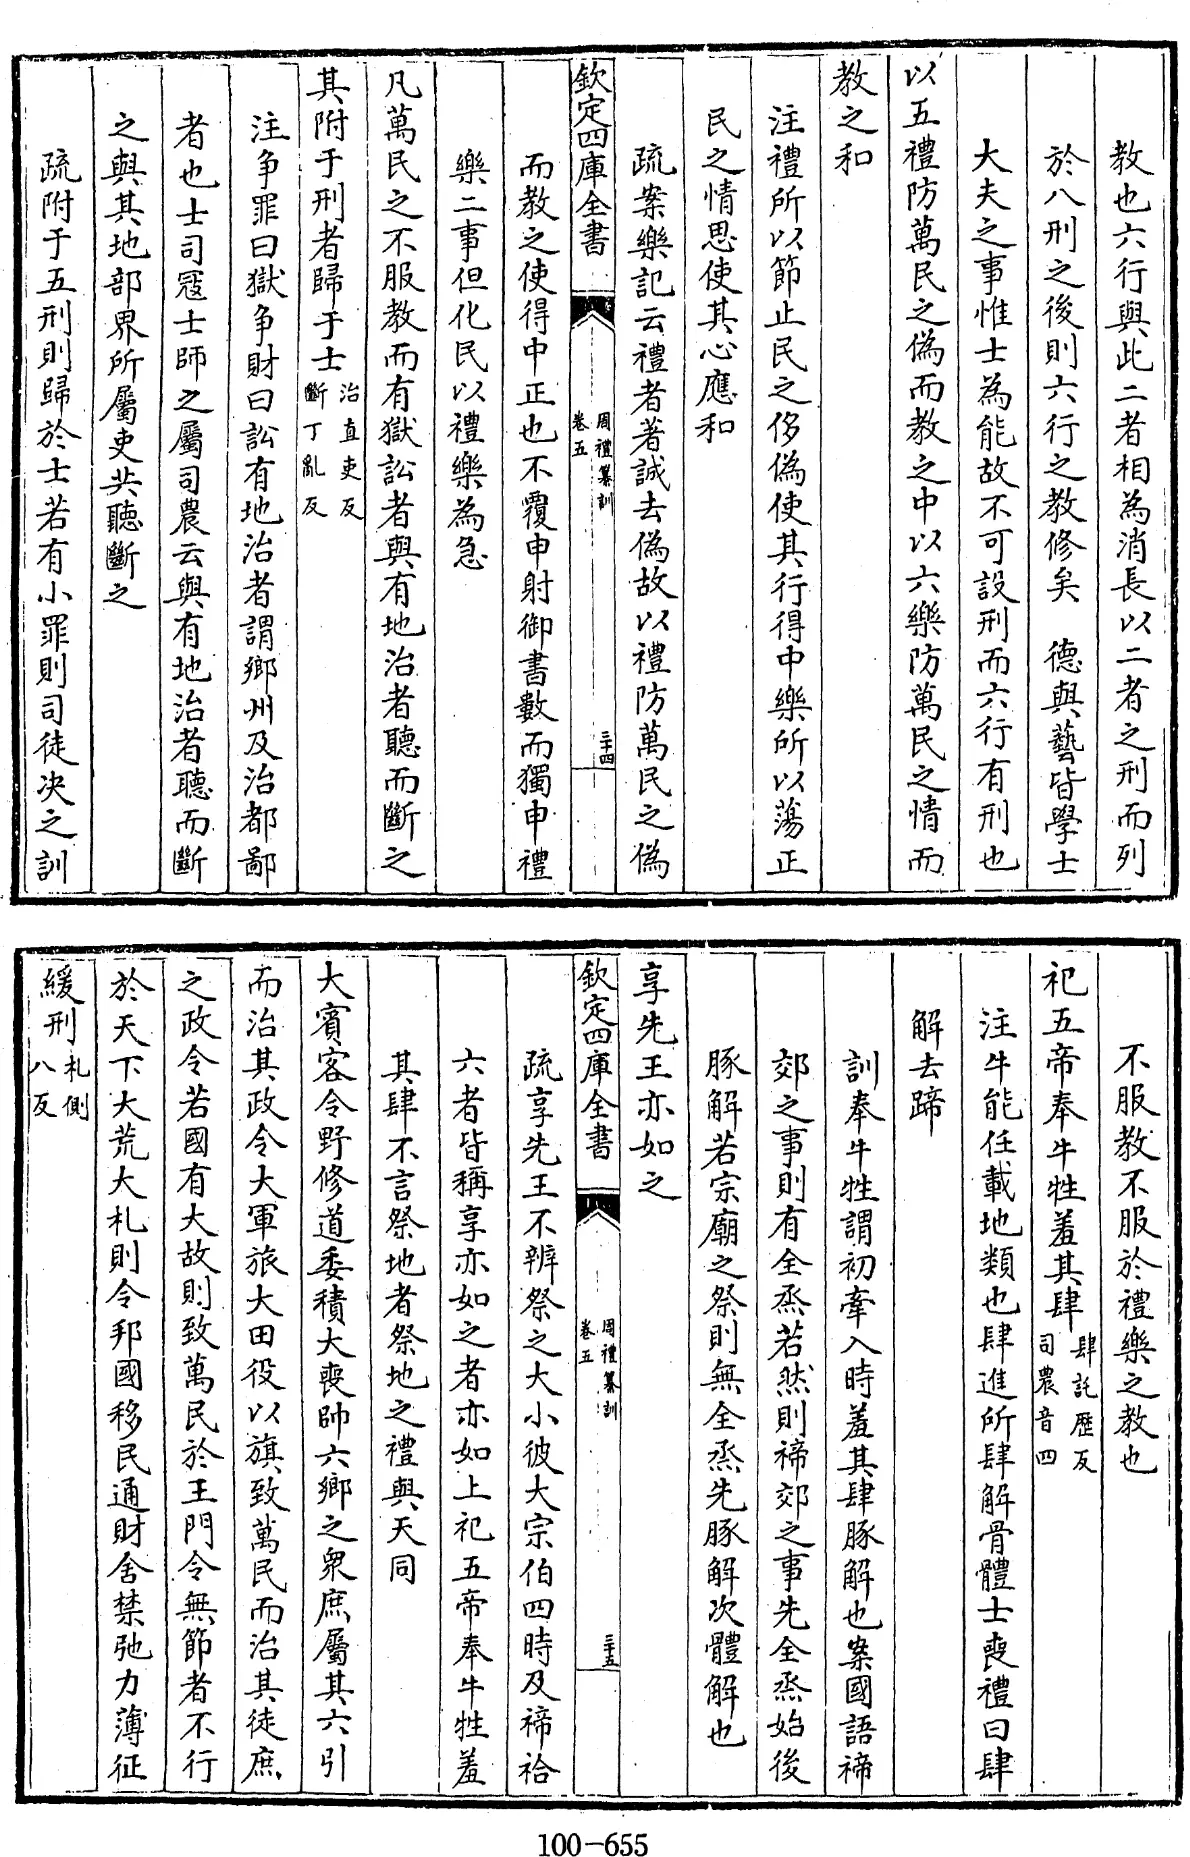 教也六行與此二者相為消長以二者之刑而列
於八刑之後則六行之教修矣　德與藝皆學士
大夫之事惟士為能故不可設刑而六行有刑也
以五禮防萬民之偽而教之中以六樂防萬民之情而
教之和
注禮所以節止民之侈偽使其行得中樂所以蕩正
民之情思使其心應和
疏案樂記云禮者著誠去偽故以禮防萬民之偽
欽定四庫全書
周禮纂訓
卷五
三十四
而教之使得中正也不覆申射御書數而獨申禮
樂二事但化民以禮樂為急
凡萬民之不服教而有獄訟者與有地治者聽而斷之
其附于刑者歸于士治直吏反斷丁亂反
注争罪曰獄争財曰訟有地治者謂鄉州及治都鄙
者也士司寇士師之屬司農云與有地治者聽而斷
之與其地部界所屬吏共聽斷之
疏附于五刑則歸於士若有小罪則司徒决之訓
不服教不服於禮樂之教也
祀五帝奉牛牲羞其肆肆託歷反司農音四
注牛能任載地類也肆進所肆解骨體士喪禮曰肆
解去蹄
訓奉牛牲謂初牽入時羞其肆豚解也案國語禘
郊之事則有全烝若然則禘郊之事先全烝始後
豚解若宗廟之祭則無全烝先豚解次體解也
享先王亦如之
欽定四庫全書
周禮纂訓
卷五
三十五
疏享先王不辨祭之大小彼大宗伯四時及禘祫
六者皆稱享亦如之者亦如上祀五帝奉牛牲羞
其肆不言祭地者祭地之禮與天同
大賓客令野修道委積大喪帥六鄉之衆庶屬其六引
而治其政令大軍旅大田役以旗致萬民而治其徒庶
之政令若國有大故則致萬民於王門令無節者不行
於天下大荒大札則令邦國移民通財舍禁弛力薄征
緩刑札側八反
100-655